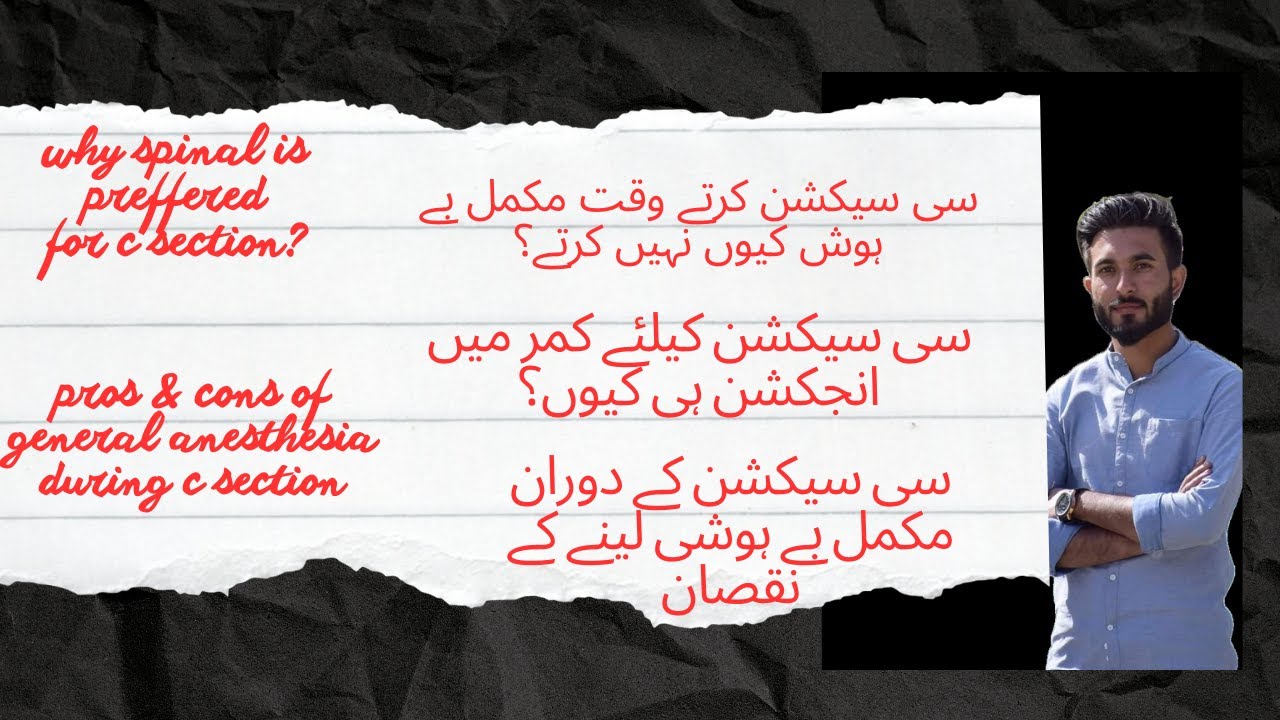 why spinal is
preffered
for c section?
pros & cons of
general anesthesia
during c section
سی سیکشن کرتے وقت مکمل بے
ہوش کیوں نہیں کرتے؟
سی سیکشن کیلئے کمر میں
انجکشن ہی کیوں؟
سی سیکشن کے دوران
مکمل بے ہوشی لینے کے
نقصان